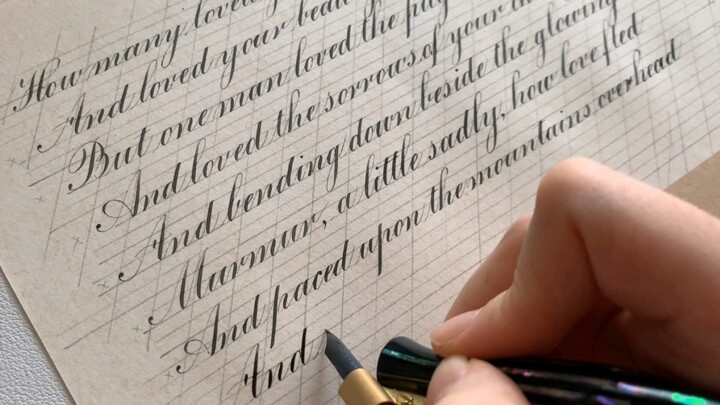 How many loved
And loved your beau
But one man loved the pilg
And loved the sorrows of your
And bending down beside the glowing
Murmur, a little sadly, how love fled
And paced upon the mountains overhead
And